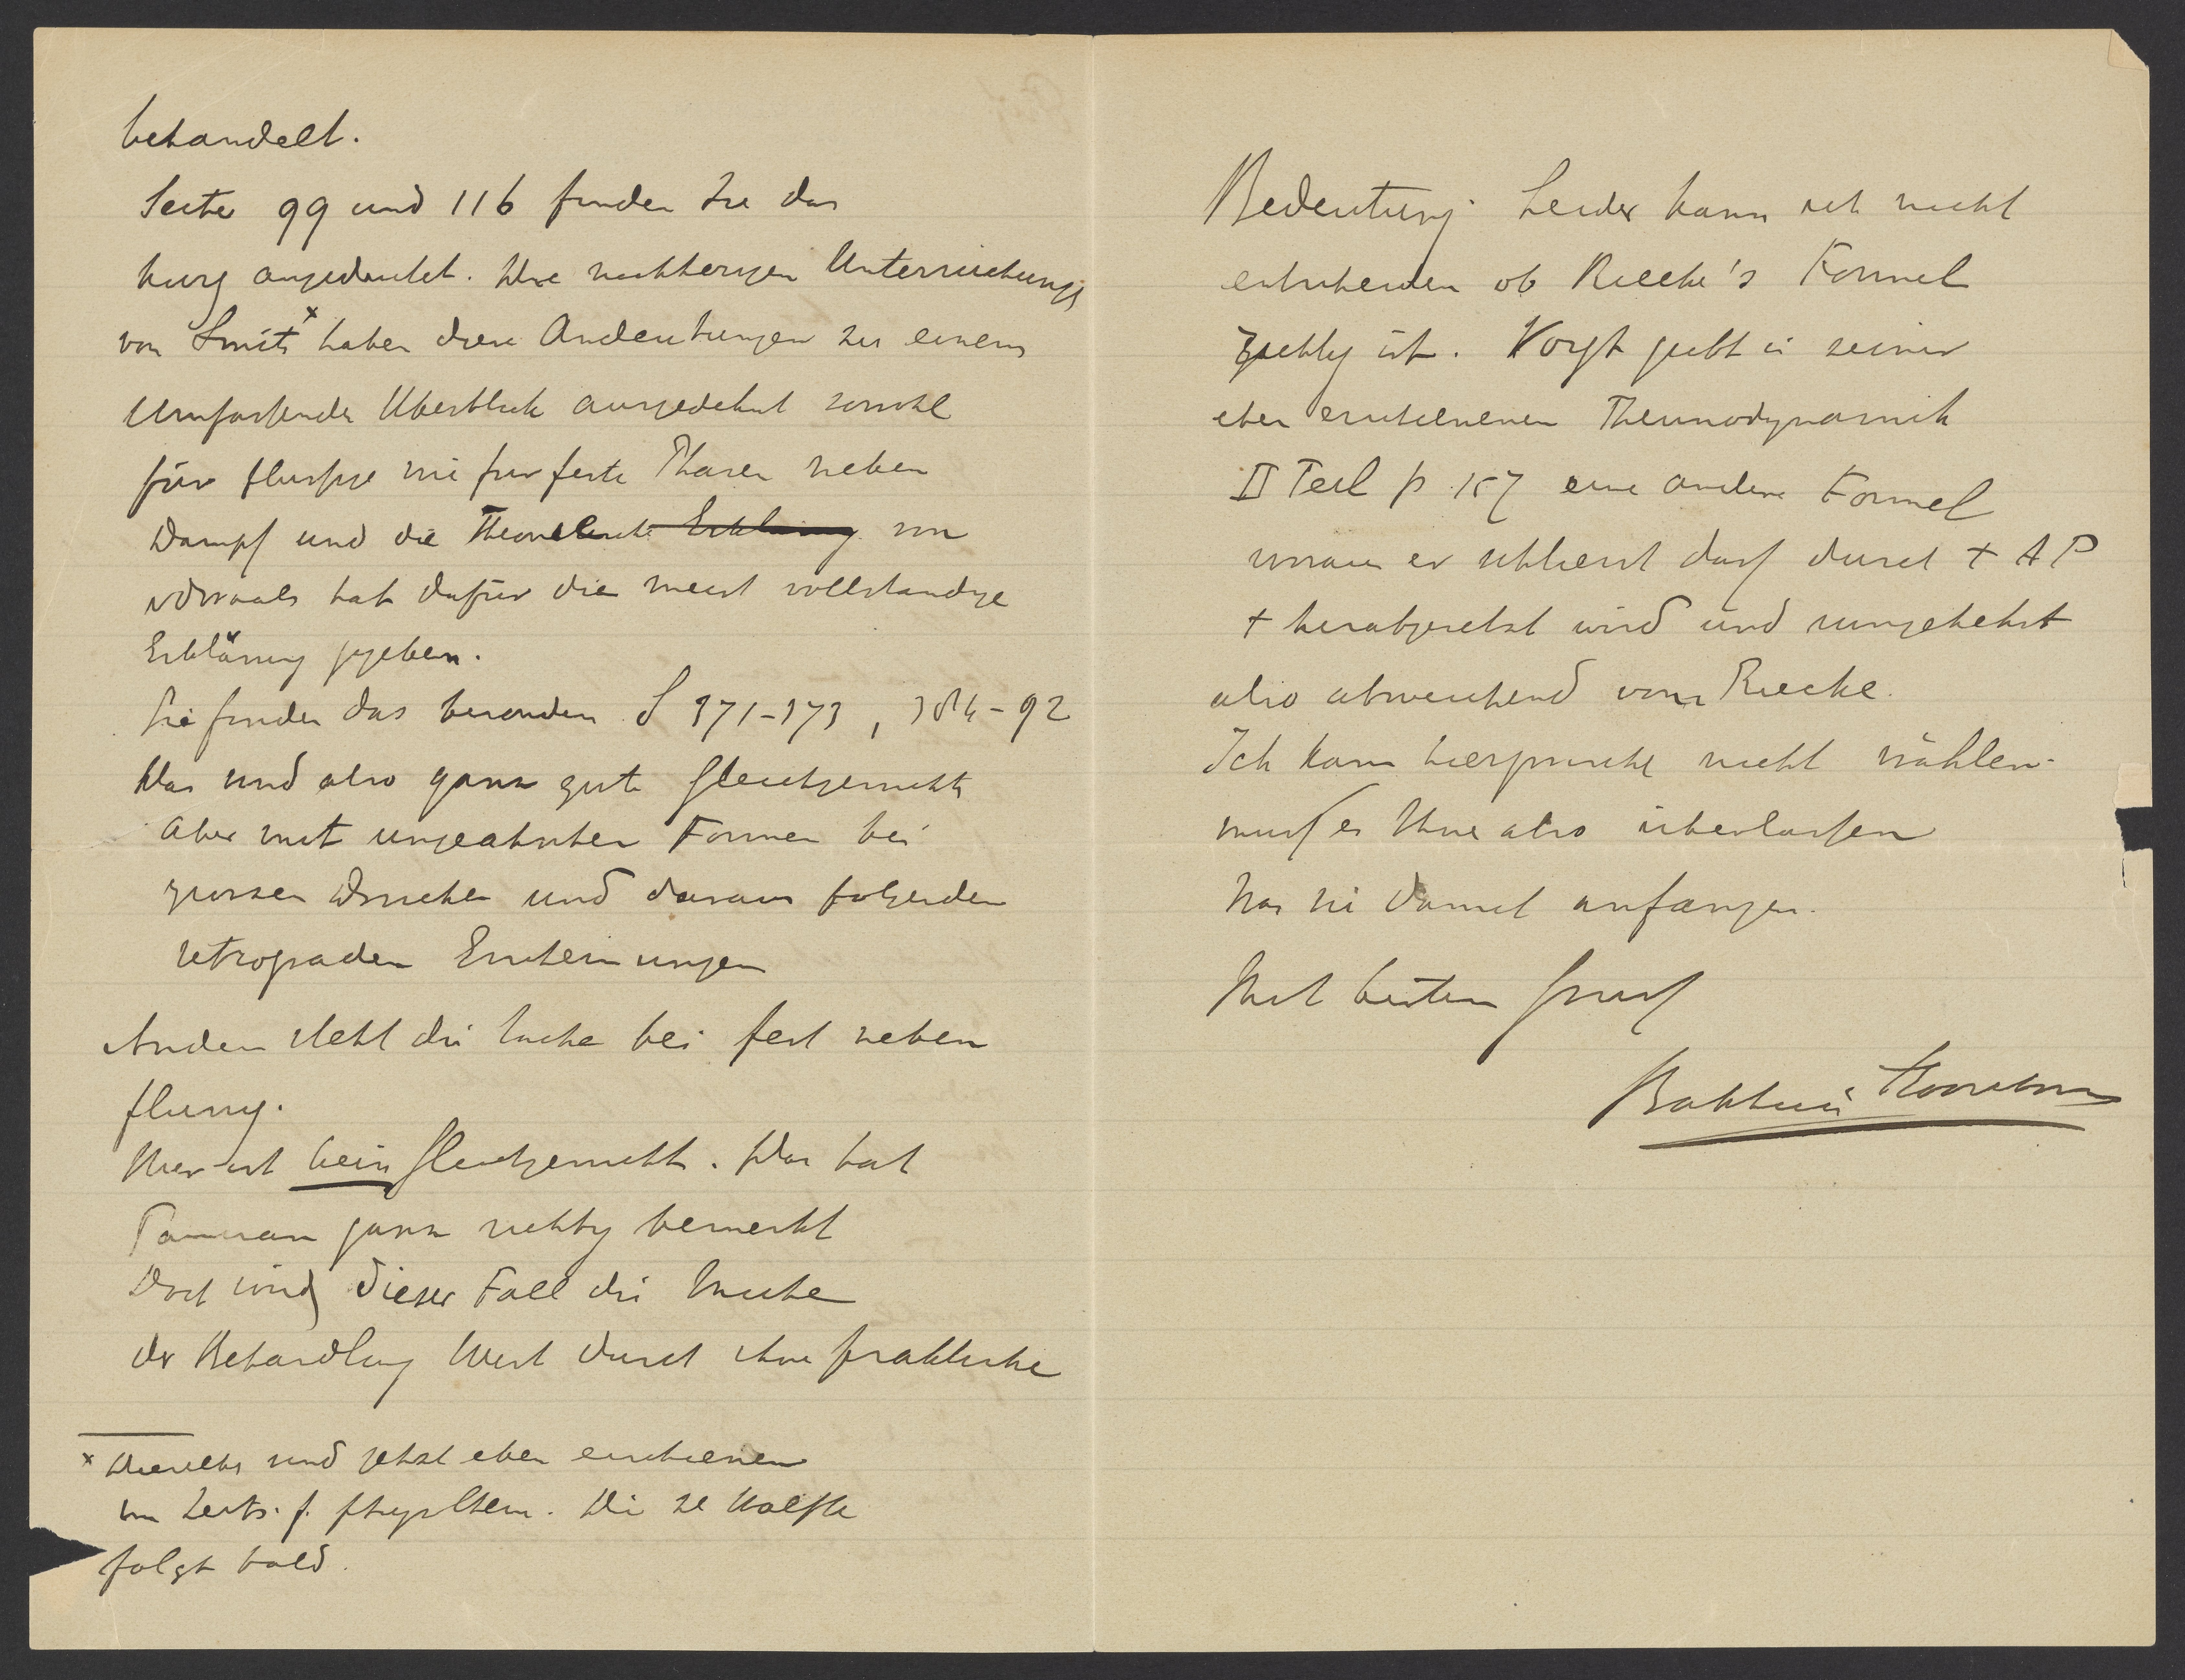 behandelt.
Seite 99 und 116 finden Sie das
kurz angedeutet. Die nachherigen Untersuchungen
von Smits x haben diese Andeutungen zu einem
umfassenden Überblick ausgedehnt sowohl
für flussige wie fur feste Phasen neben
Dampf und die Theorie von
vdWaals hat dafür die meist vollstandige
Erklärung gegeben.
Sie finden das besonders S 371-373, 384-92
Das sind also ganz gute Gleichgewichte
aber mit ungeahnten Formen bei
grossen Drucken und daraus folgenden
retrograden Erscheinungen
Anders steht die Sache bei fest neben
flussig.
Hier ist kein Gleichgewicht. Das hat
Tamman ganz richtig bemerkt
Doch wird dieser Fall die Muhe
der Behandlung Wert durch ihre praktische
x Dieselbe sind jetzt eben erschienen
im Zeits. f. phys Chem. Die 2e Halfte
folgt bald.
Bedeutung. Leider kann ich nicht
entscheiden ob Riecke's Formel
richtig ist. Voigt giebt in seiner
eben erschienenen Thermodynamik
II Teil p 157 eine andere Formel
woraus er schliesst dass durch + Δ P
t herabgesetzt wird und umgekehrt
also abweichend von Riecke.
Ich kann hierzwische nicht wählen.
muss es Ihne also überlassen
was sie damit anfangen.
Mit bestem Gruss
Bakhuis Roozeboom